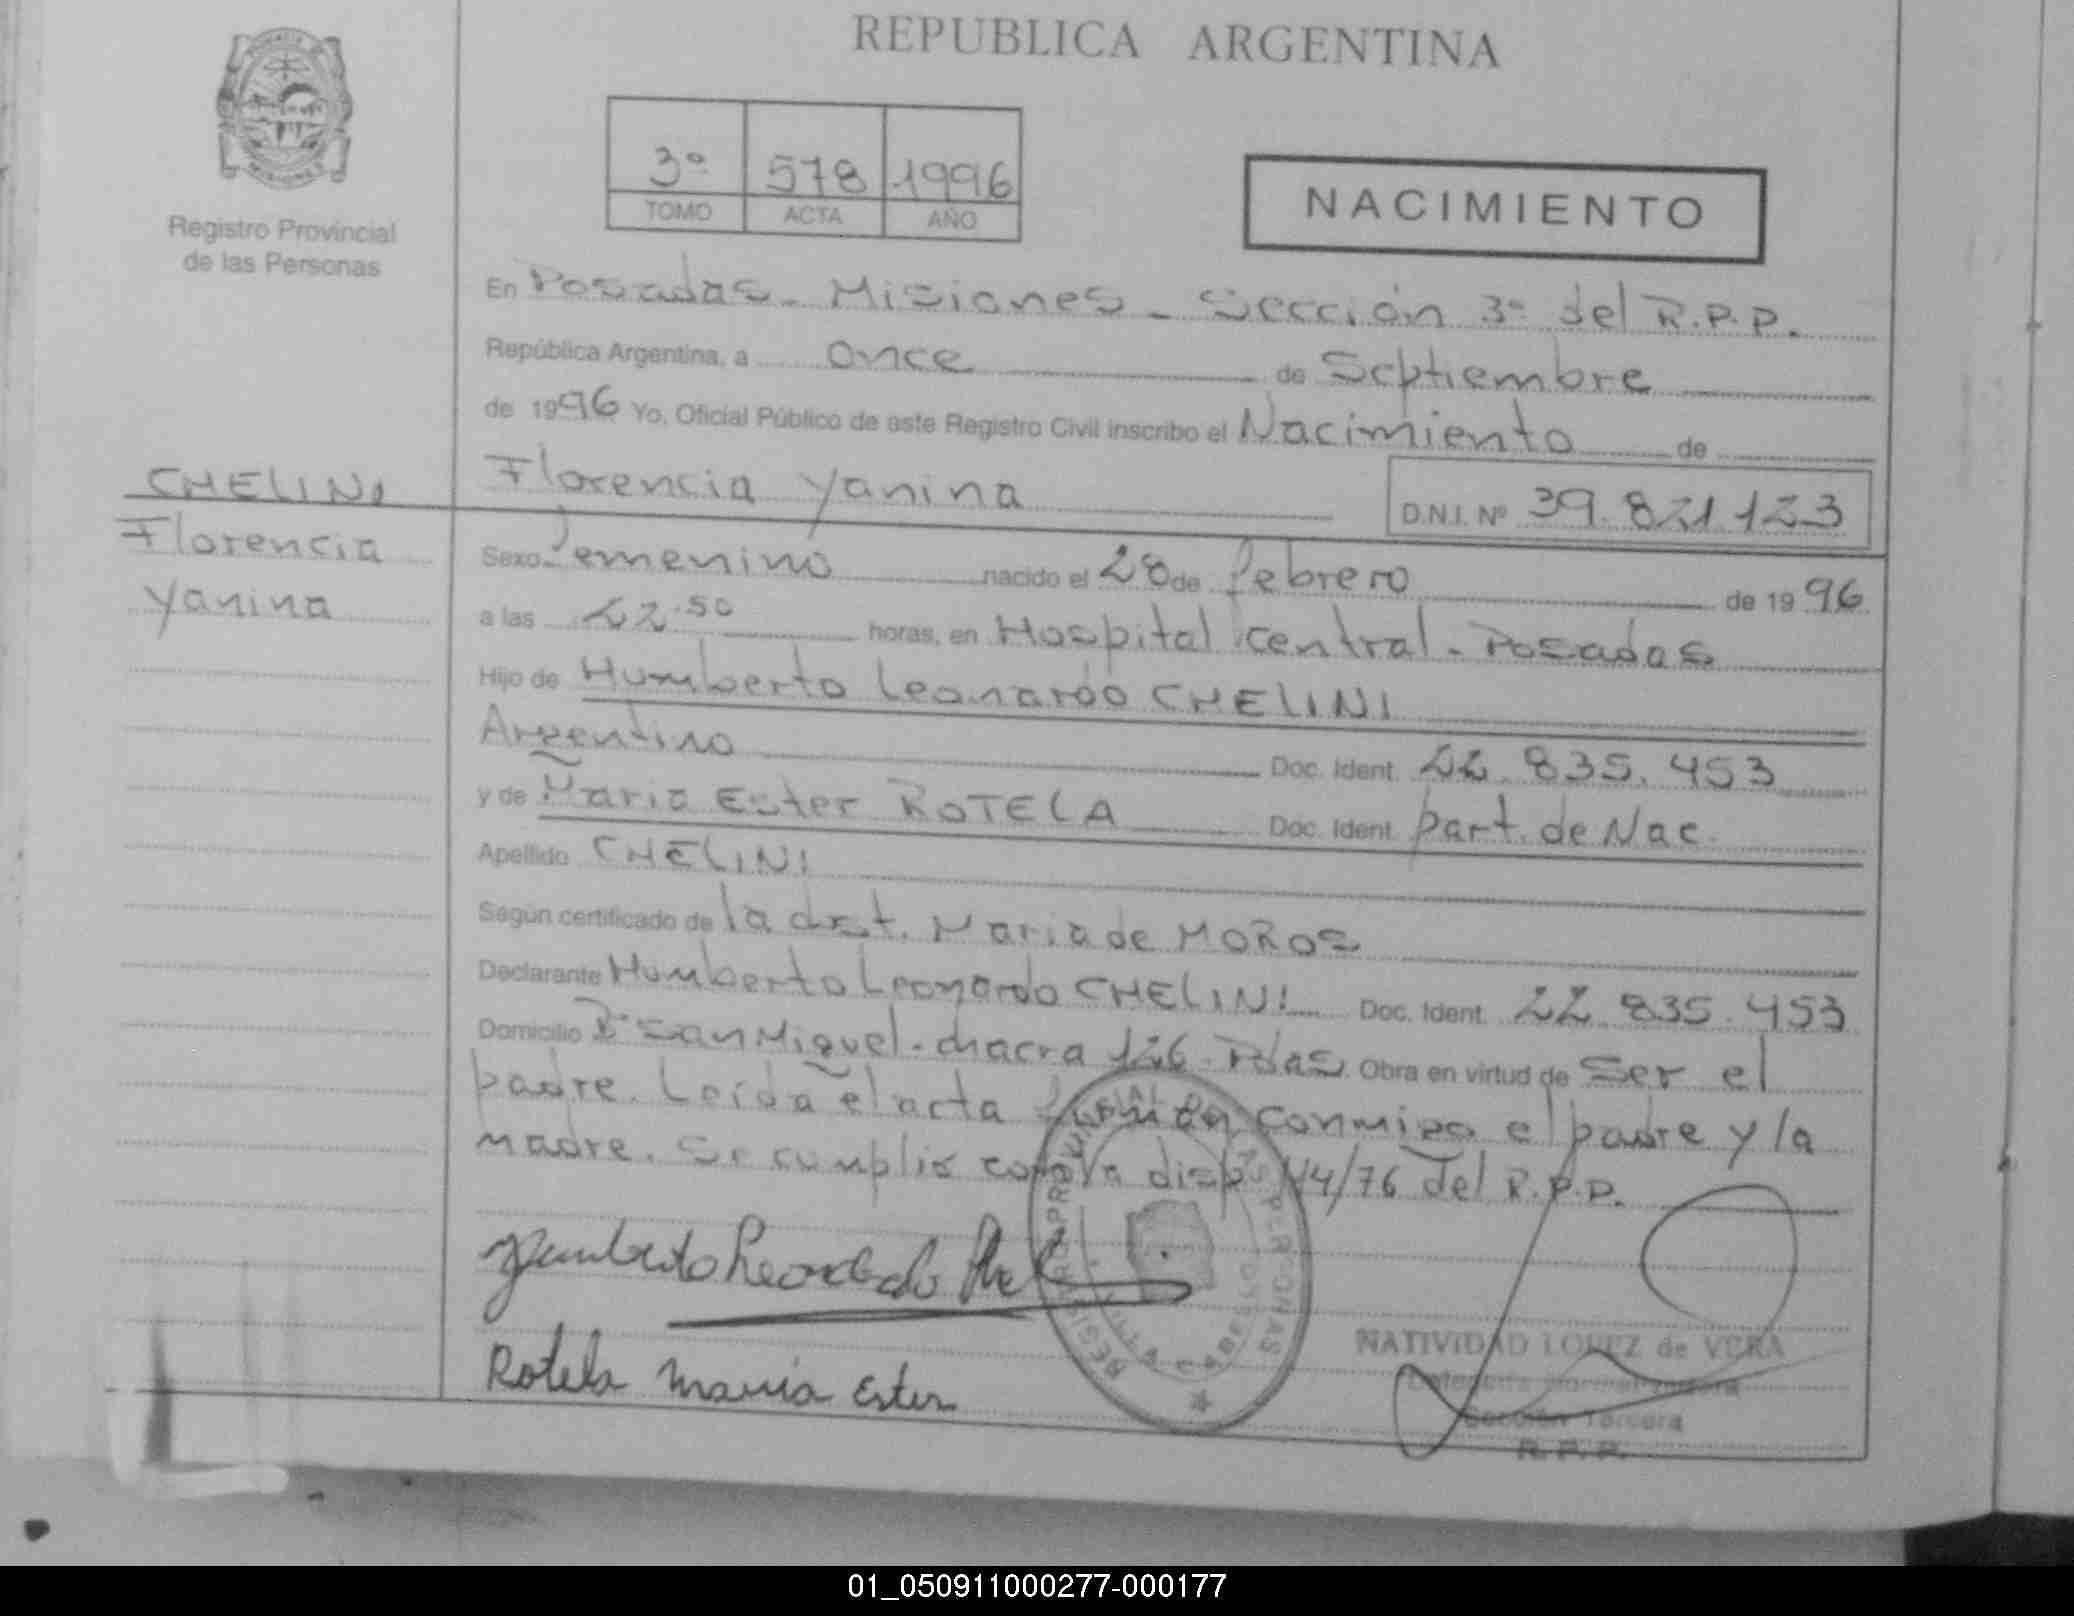 REPUBLICA ARGENTINA
PROVINCIA DE MISIONES
Registro Provincial
de las Personas
3º 578 1996
TOMO ACTA AÑO
NACIMIENTO
En Posadas - Misiones - Sección 3º del R.P.P.
República Argentina, a once de Septiembre
de 1996 Yo, Oficial Público de este Registro Civil inscribo el Nacimiento de
Florencia Yanina D.N.I. Nº 39.821.123
CHELINI
Florencia
Yanina
Sexo Femenino nacido el 28 de febrero de 1996
a las 22.50 horas, en Hospital Central - Posadas
Hijo de Humberto Leonardo CHELINI
Argentino Doc. Ident. 22.835.453
y de Maria Ester ROTELA Doc. Ident. part. de Nac.
Apellido CHELINI
Según certificado de la obst. Maria de MOROS
Declarante Humberto Leonardo CHELINI Doc. Ident. 22.835.453
Domicilio Bº San Miguel - chacra 126 - Pdas. Obra en virtud de Ser el
padre. Leída el acta firman conmigo el padre y la
madre. Se cumplió con la disp. 44/76 del R.P.P.
Humberto Leonardo Chel
Rotela Maria Ester
REGISTRO PROVINCIAL DE LAS PERSONAS
NATIVIDAD LOPEZ de VERA
Sección Tercera
R.P.P.
01_050911000277-000177